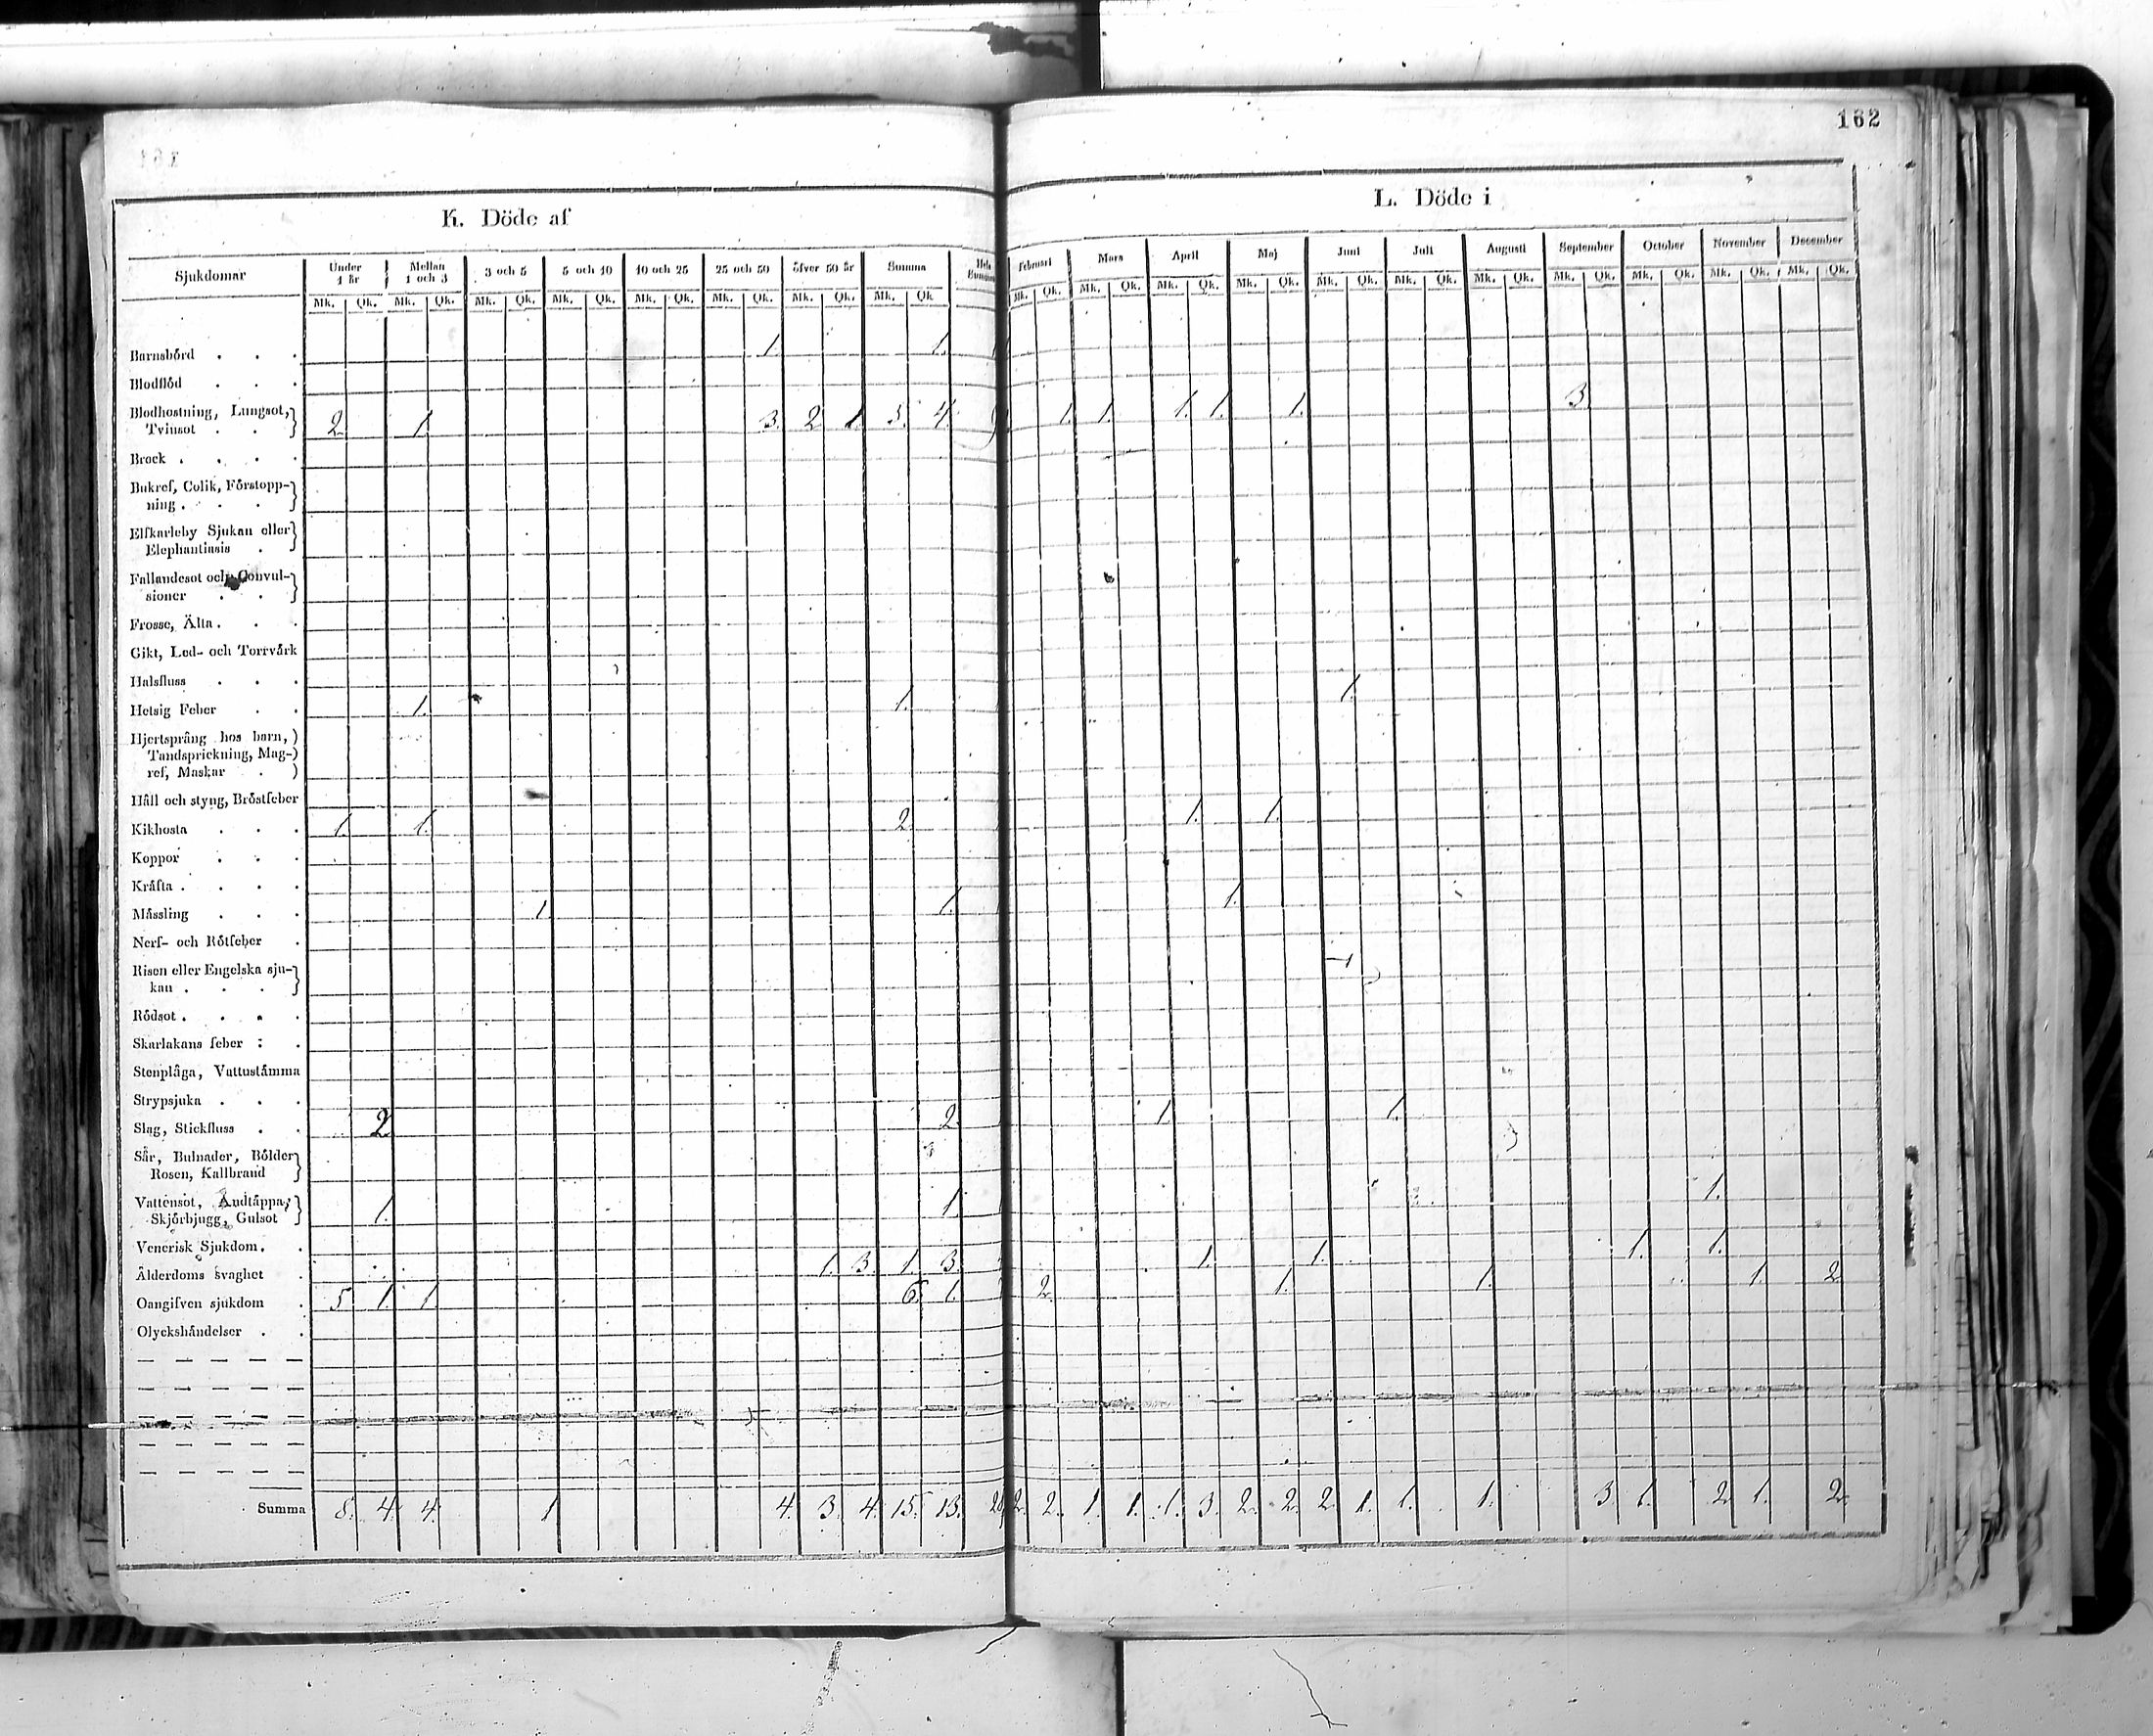 162
K. Döde af
L. Döde i
Sjukdomar Under 1 år Mellan 1 och 3 3 och 5 5 och 10 10 och 25 25 och 50 öfver 50 år Summa Hela
Februari Mars April Maj Juni Juli Augusti September October November December
Mk. Qk. Mk. Qk. Mk. Qk. Mk. Qk. Mk. Qk. Mk. Qk. Mk. Qk. Mk. Qk
Mk. Qk. Mk. Qk. Mk. Qk. Mk. Qk. Mk. Qk. Mk. Qk. Mk. Qk. Mk. Qk. Mk. Qk. Mk. Qk. Mk. Qk.
Barnsbörd . . . 1. 1.
Blodflöd . . .
Blodhostning, Lungsot,
Tvinsot . . 2. 1. 3. 2 1. 5. 4. 1. 1. 1. 1. 1. 3
Brock . . . .
Bukref, Colik, Förstopp-
ning . . .
Elfkarleby Sjukan eller
Elephantiasis .
Fallandesot och Convul-
sioner . .
Frosse, Älta . . .
Gikt, Led- och Torrvärk
Halsfluss . . .
Hetsig Feber . . 1. 1. 1.
Hjertsprång hos barn,
Tandsprickning, Mag-
ref, Maskar .
Håll och styng, Bröstfeber
Kikhosta . . . 1. 1. 2. 1. 1.
Koppor . . .
Kräfta . . . .
Mässling . . . 1 1. 1.
Nerf- och Rötfeber .
Risen eller Engelska sju-
kan . . .
Rödsot . . . .
Skarlakans feber : .
Stenplåga, Vattustämma
Strypsjuka . . .
Slag, Stickfluss . . 2 2. 1. 1.
Sår, Bulnader, Bölder
Rosen, Kallbrand
Vattensot, Andtäppa,
Skjörbjugg, Gulsot 1. 1. 1.
Venerisk Sjukdom. .
Ålderdoms svaghet . 1. 3. 1. 3. 1. 1. 1. 1.
Oangifven sjukdom . 5. 1. 1. 6. 1. 2. 1. 1. 1. 2
Olyckshändelser . .
Summa 8. 4. 4. 1 4. 3. 4. 15. 13. 28 2. 2. 1. 1. 1. 3. 2. 2. 2. 1. 1. 1. 3 1. 2 1. 2.